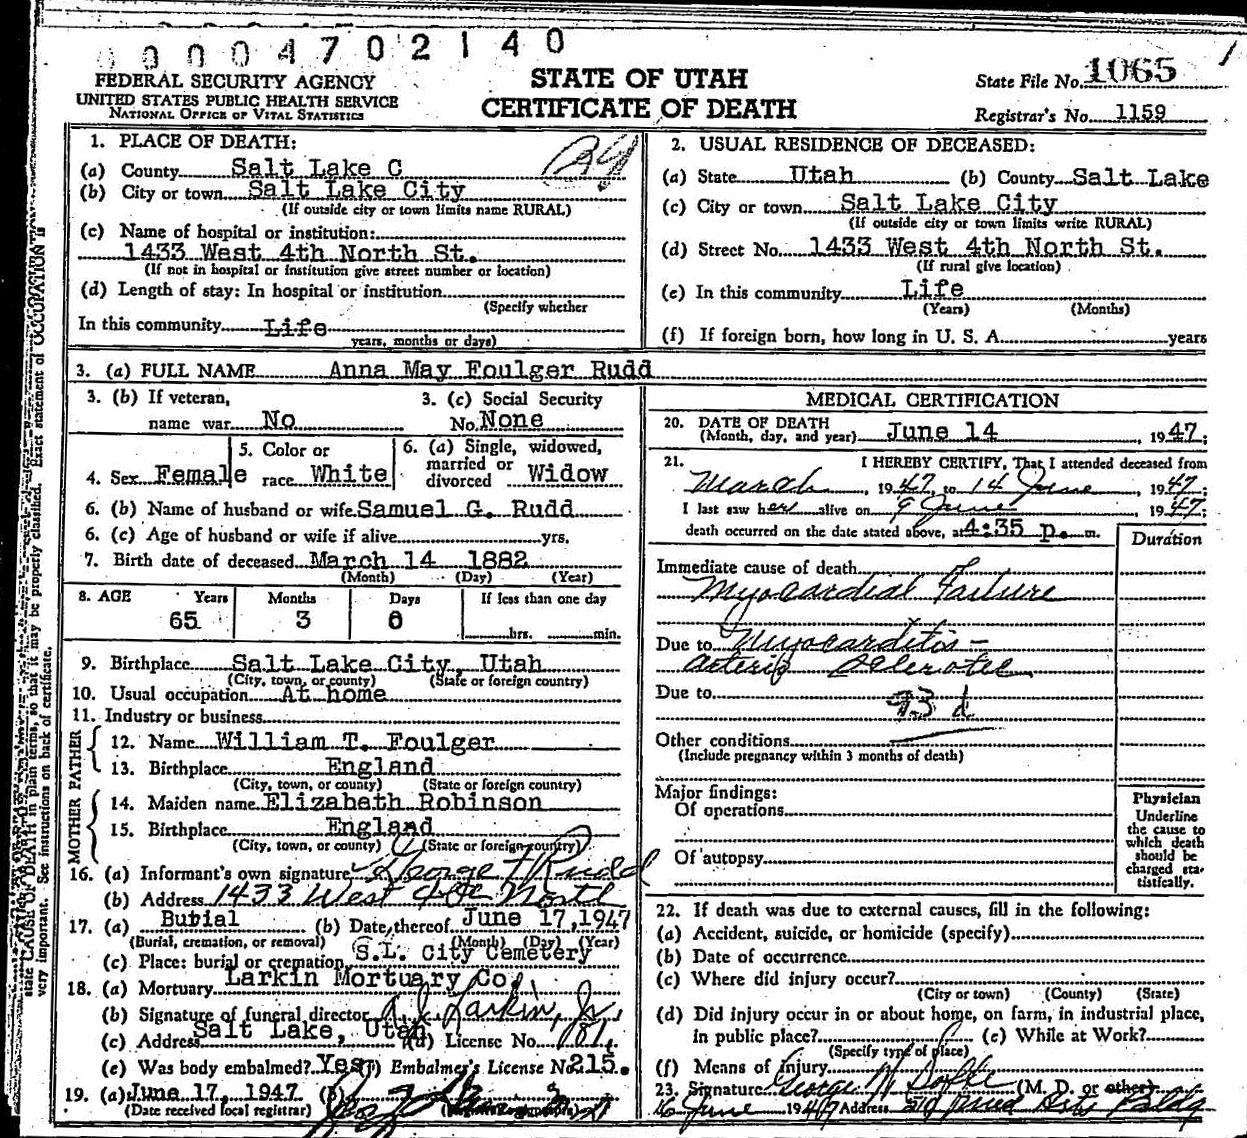 00004702140
FEDERAL SECURITY AGENCY
UNITED STATES PUBLIC HEALTH SERVICE
NATIONAL OFFICE OF VITAL STATISTICS
STATE OF UTAH
CERTIFICATE OF DEATH
State File No. 1065
Registrar's No. 1159
1. PLACE OF DEATH:
(a) County Salt Lake C
(b) City or town Salt Lake City
(If outside city or town limits name RURAL)
(c) Name of hospital or institution:
1433 West 4th North St.
(If not in hospital or institution give street number or location)
(d) Length of stay: In hospital or institution
(Specify whether
In this community Life
years, months or days)
2. USUAL RESIDENCE OF DECEASED:
(a) State Utah (b) County Salt Lake
(c) City or town Salt Lake City
(If outside city or town limits write RURAL)
(d) Street No. 1433 West 4th North St.
(If rural give location)
(e) In this community Life
(Years) (Months)
(f) If foreign born, how long in U. S. A. years
3. (a) FULL NAME Anna May Foulger Rudd
3. (b) If veteran, 3. (c) Social Security
name war No No. None
4. Sex Female 5. Color or race White 6. (a) Single, widowed, married or divorced Widow
6. (b) Name of husband or wife Samuel G. Rudd
6. (c) Age of husband or wife if alive yrs.
7. Birth date of deceased March 14 1882
(Month) (Day) (Year)
8. AGE Years Months Days If less than one day
65 3 0 hrs. min.
9. Birthplace Salt Lake City, Utah
(City, town, or county) (State or foreign country)
10. Usual occupation At home
11. Industry or business
FATHER
12. Name William T. Foulger
13. Birthplace England
(City, town, or county) (State or foreign country)
MOTHER
14. Maiden name Elizabeth Robinson
15. Birthplace England
(City, town, or county) (State or foreign country)
16. (a) Informant's own signature George F Rudd
(b) Address 1433 West 4th North
17. (a) Burial (b) Date thereof June 17, 1947
(Burial, cremation, or removal) (Month) (Day) (Year)
(c) Place: burial or cremation S.L. City Cemetery
18. (a) Mortuary Larkin Mortuary Co.
(b) Signature of funeral director A. J. Larkin, Jr.
(c) Address Salt Lake, Utah (d) License No. 181
(e) Was body embalmed? Yes (f) Embalmer's License No. 215.
19. (a) June 17, 1947 (b)
(Date received local registrar)
MEDICAL CERTIFICATION
20. DATE OF DEATH
(Month, day, and year) June 14, 1947;
21. I HEREBY CERTIFY, That I attended deceased from
March, 1947, to 14 June, 1947;
I last saw her alive on 9 June, 1947;
death occurred on the date stated above, at 4:35 p. m.
Duration
Immediate cause of death
Myocardial Failure
Due to Myocarditis -
Arterio Sclerotic
Due to
93 d
Other conditions
(Include pregnancy within 3 months of death)
Major findings:
Of operations
Of autopsy
Physician
Underline
the cause to
which death
should be
charged sta-
tistically.
22. If death was due to external causes, fill in the following:
(a) Accident, suicide, or homicide (specify)
(b) Date of occurrence
(c) Where did injury occur?
(City or town) (County) (State)
(d) Did injury occur in or about home, on farm, in industrial place,
in public place? (e) While at Work?
(Specify type of place)
(f) Means of Injury
23. Signature George N (M. D. or other)
16 June 1947 Address Arts Bldg
state CAUSE OF DEATH in plain terms, so that it may be properly classified. Exact statement of OCCUPATION is
very important. See instructions on back of certificate.